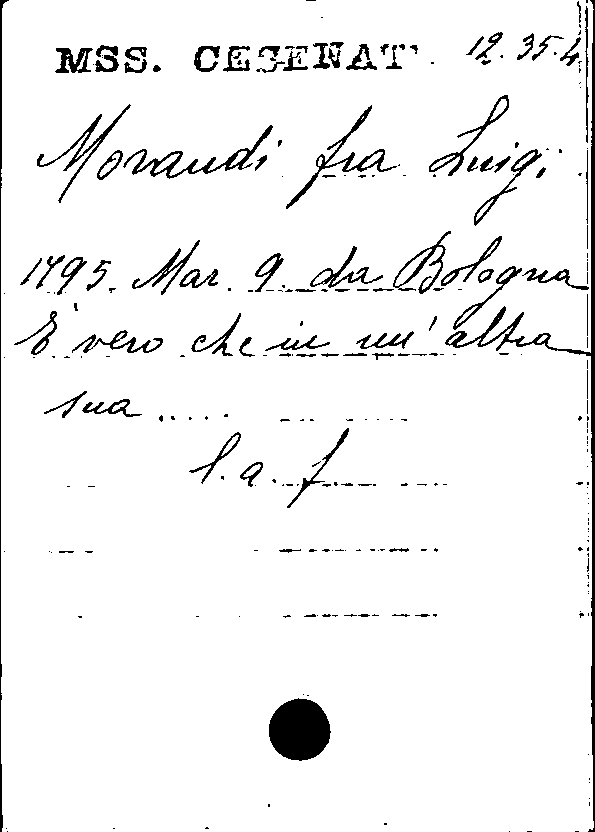 MSS. CESENAT. 12.35.4
Morandi fra Luigi
1795. Mar. 9. da Bologna
È vero che in un'altra
sua .....
l. a. f.